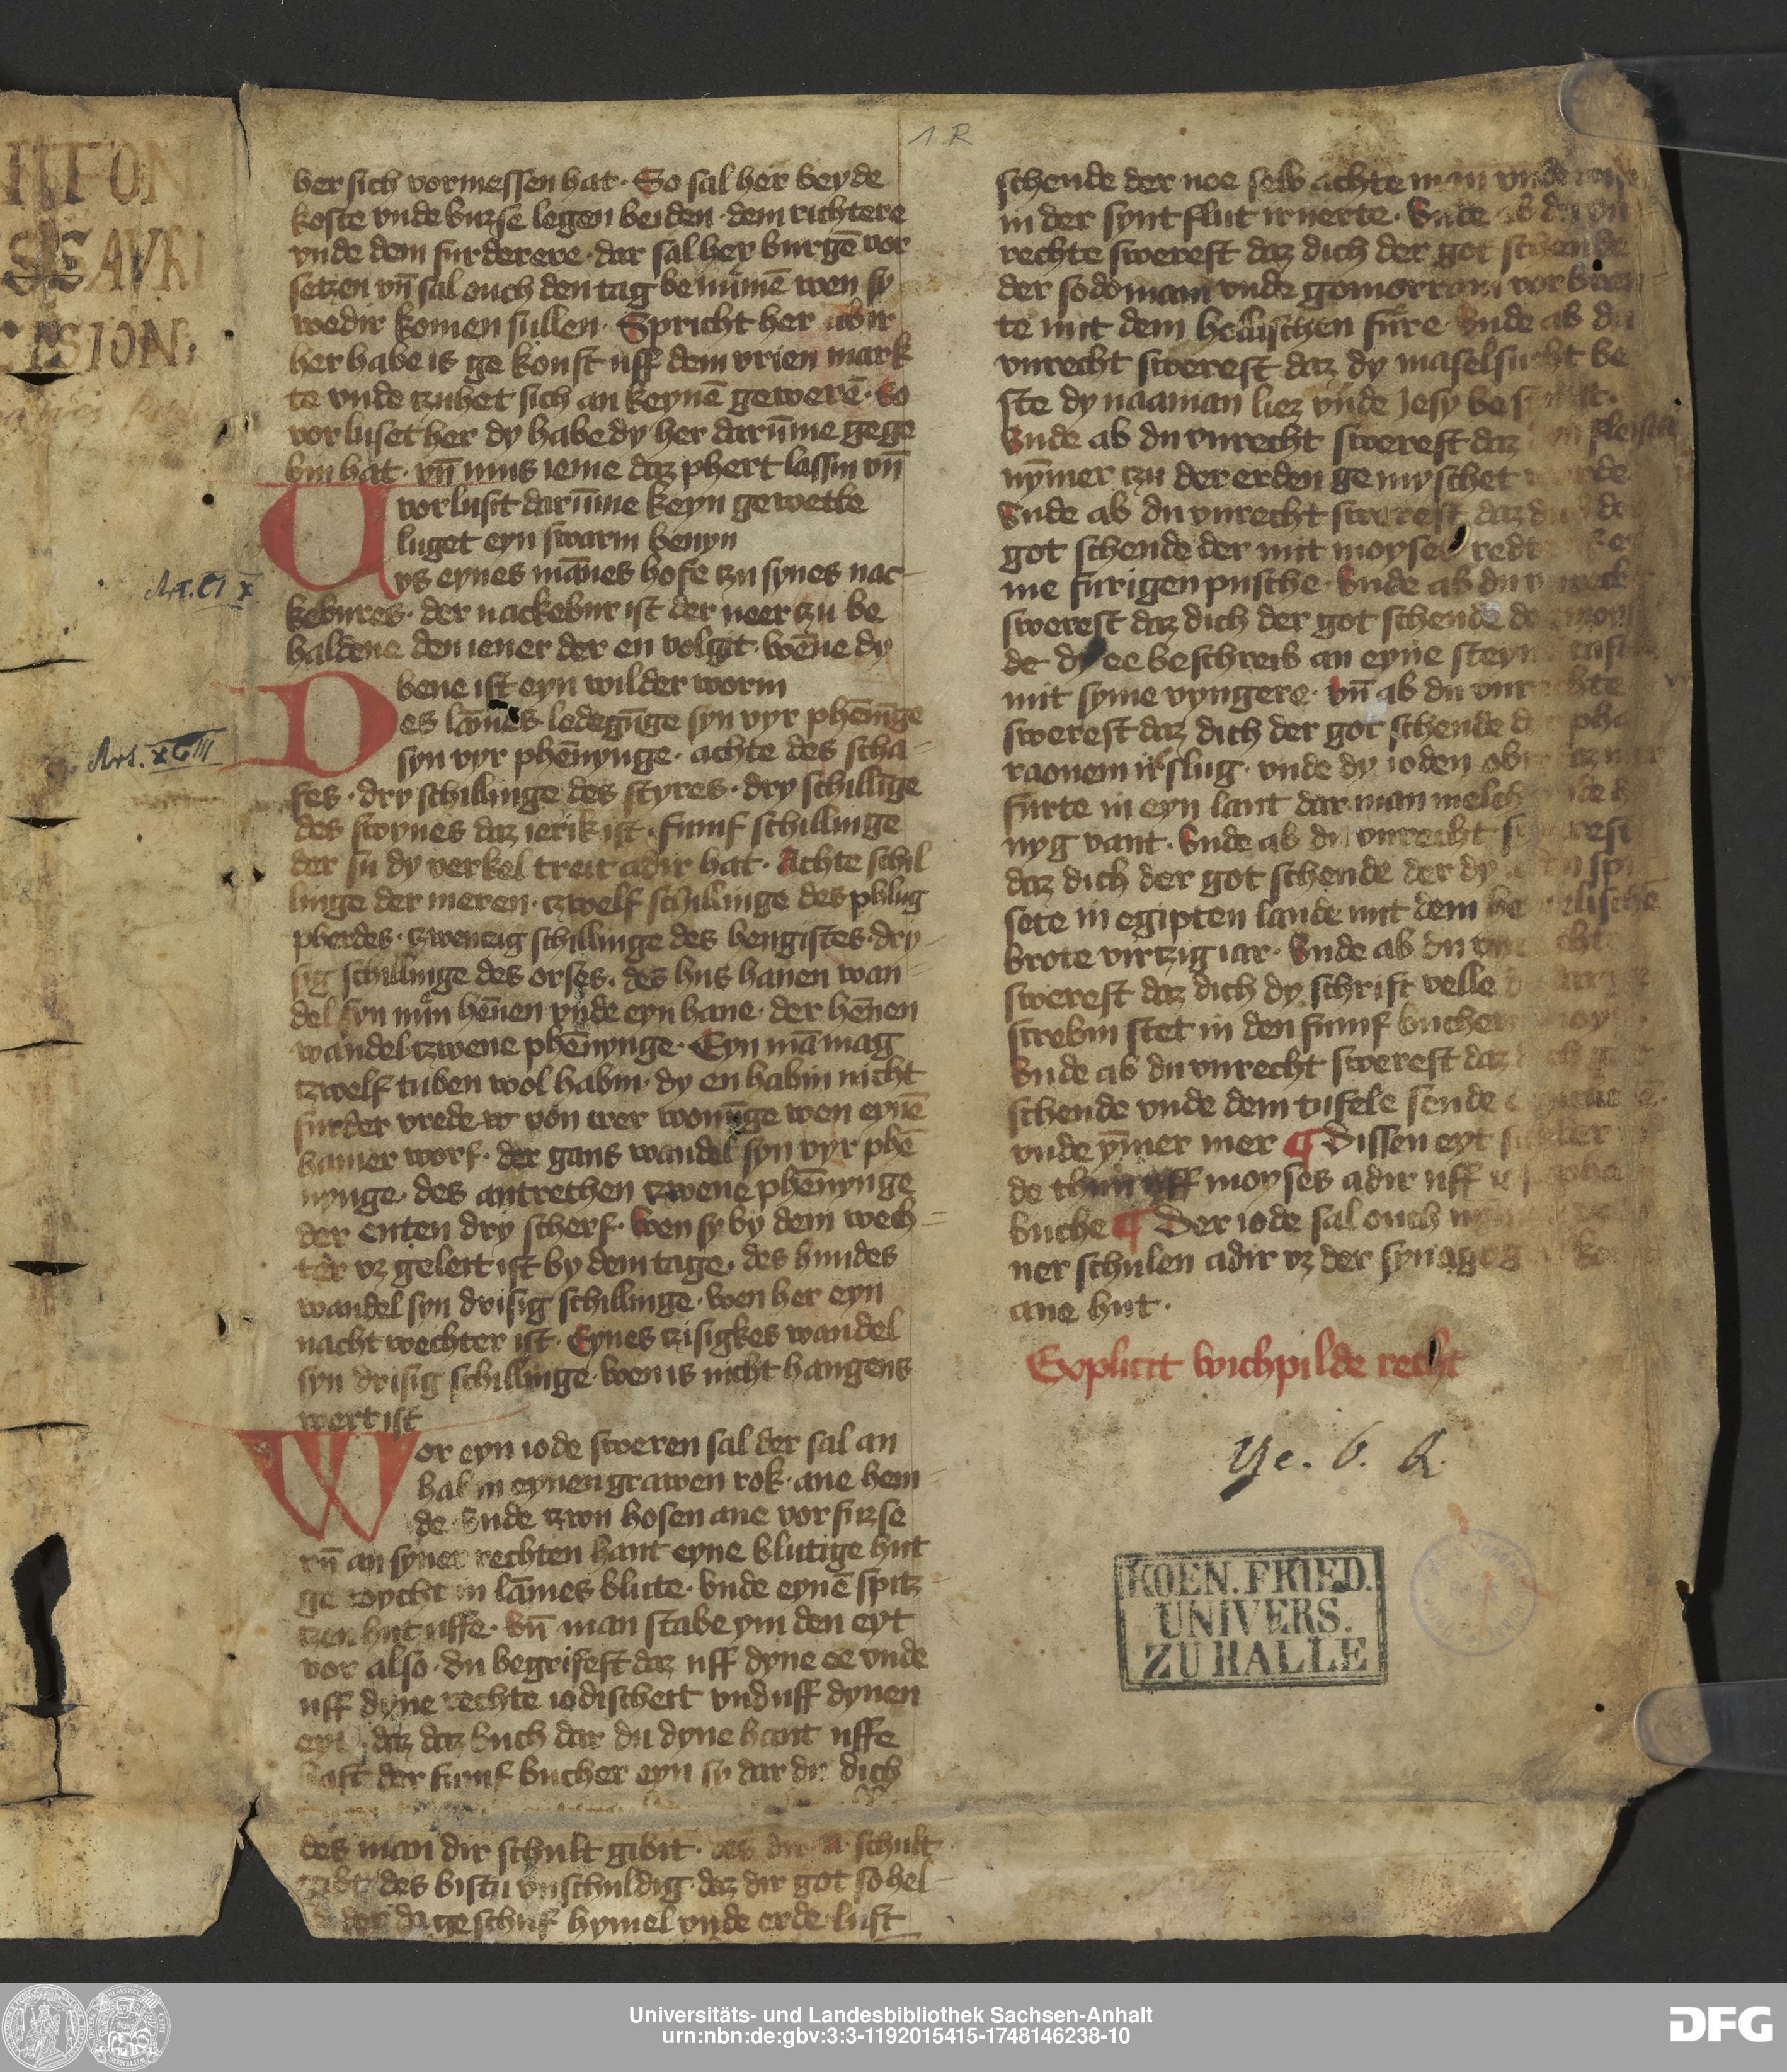 NITFON
SSGAVRI
CISION:
1 R
her sich vormessen hat. So sal her beyde
koste vnde burse legen beiden dem richtere
vnde dem furderere. dar sal her burgē vor
setzen vn̄ sal ouch den tag benūmē wen sy
wedir komen sullen. Spricht her abir
her habe is gekouft uff dem vrien mark
te vnde tzuhet sich an keynē gewerē. So
vorluset her dy habe dy her darūme gege
bin hat. vn̄ mus ieme daz phert lassin vn̄
vorlusit darūme keyn gewette
Vluget eyn swarm benyn
vs eynes mānes hofe tzu synes nac-
Art. CIX
kebures. der nackebur ist der neer tzu be
haldene den iener der en volgit. wēne dy
bene ist eyn wilder worm
Des lāmes ledegūge syn vyr phēnīge
syn vyr phēnynge. achte des scha-
Art. XCIII
fes. dry schillinge des styres. dry schillīge
des swynes daz ierik ist. funf schillinge
der su dy verkel treit adir hat. Achte schil
linge der meren. tzwelf schillinge des phlug
pherdes. tzwentzig schillinge des hengistes. dry-
sig schillinge des orses. des hus hanen wan-
del syn nūn hēnen vnde eyn hane. der hēnen
wandel tzwene phēnynge. Eyn mā mag
tzwelf tuben wol habin. dy en habin nicht
furder vrede von wer wonūge wen eynē
hamer worf. der gans wandel syn vyr phē
nynge. des antrechen tzwene phēnynge
der enten dry scherf. wen sy by dem wech-
ter vz geleit ist by dem tage. des hundes
wandel syn drisig schillinge. wen her eyn
nacht wechter ist. Eynes tzisigkes wandel
syn drisig schillinge. wen is nicht hangens
wert ist
Wor eyn iode sweren sal der sal an
habin eynen grawen rok. ane hem-
de. Vnde tzwu hosen ane vorfuzse
vn̄ an syner rechten hant eyne blutige hut
ge toycht in lāmes blute. vnde eynē spitz-
tzen hut uffe. vn̄ man stabe ym den eyt
vor also. du begrifest daz uff dyne ee vnde
uff dyne rechte iodischeit vnd uff dynen
eyt. daz daz buch dar du dyne hant uffe
hast der funf bucher eyn sy dar du dich
des man dir schult gibit. des schult
des bistu vnschuldig daz dir got so hel-
der da geschuf hymel vnde erde luft
schende der noe selb achte man vnde
in der synt flut irnerte. Vnde ab du vn
rechte swerest daz dich der got schende
der sodomam vnde gomorram vorbren-
te mit dem hellischen fure. Vnde ab du
vnrecht swerest daz dy maselsucht be
ste dy naaman liez vnde Jesy
Vnde ab du vnrecht swerest daz fleisch
nȳmer tzu der erden gemyschet werde
Vnde ab du vnrecht swerest daz dich der
got schende der mit moyse redt
me furigen pusche. Vnde ab du vnrecht
swerest daz dich der got schende der moysi
de dy ee beschreib an eyne steyn
mit syme vyngere. vn̄ ab du vnrechte
swerest daz dich der got schende der pha
raonem irslug. vnde dy ioden obir
furte in eyn lant dar man melch vnde ho
nyg vant. Vnde ab du vnrecht swerest
daz dich der got schende der dy ioden spi
sete in egipten lande mit dem hemelischē
brote virtzig iar. Vnde ab du vnrecht
swerest daz dich dy schrift velle
screbin stet in den funf bucher moysi
Vnde ab du vnrecht swerest daz dich got
schende vnde dem tufele sende
vnde ȳmer mer ¶ Dissen eyt
de thun uff moyses adir uff
buche ¶ Der iode sal ouch
ner schulen adir vz der synagogen
ane hut.
Explicit wichpilde recht
Ye. 6. Q.
KOEN. FRIED.
UNIVERS.
ZU HALLE
Universitäts- und Landesbibliothek Sachsen-Anhalt
urn:nbn:de:gbv:3:3-1192015415-1748146238-10
DFG